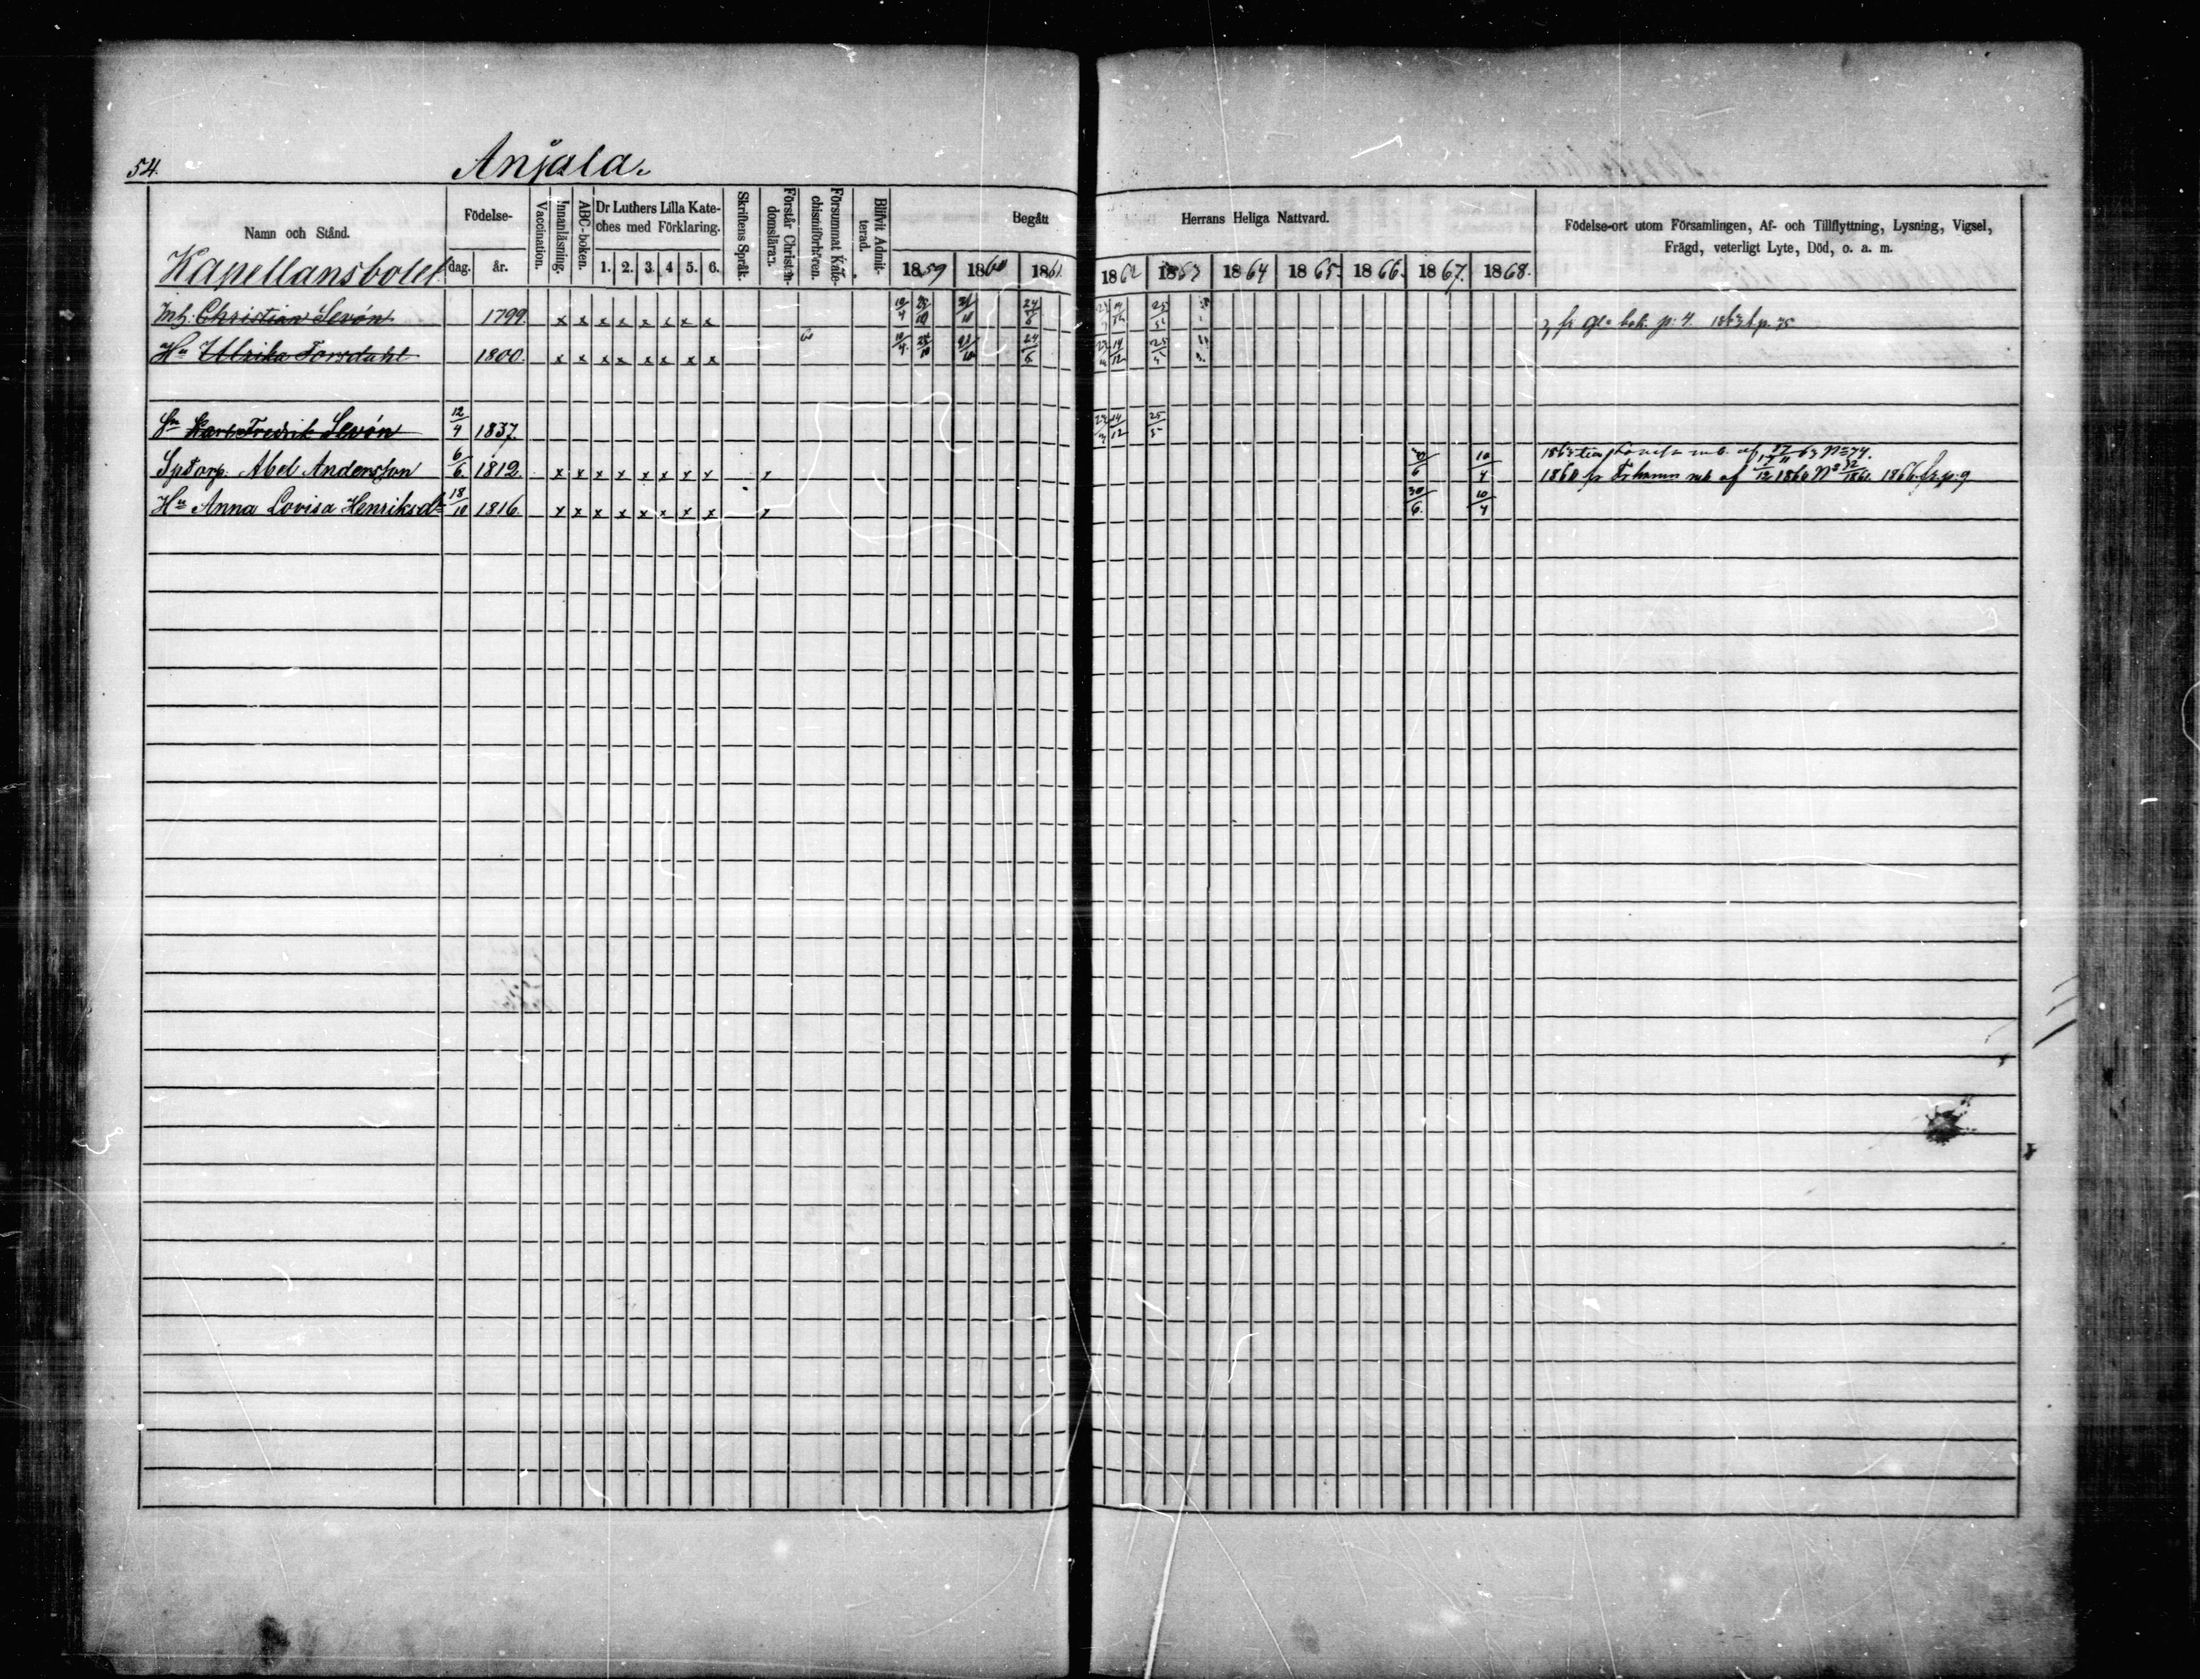 54.
Anjala.
Namn och Stånd.
Födelse-
dag. år.
Vaccination.
Innanläsning.
ABC-boken.
Dr Luthers Lilla Kate-
ches med Förklaring.
1. 2. 3. 4 5. 6.
Skriftens Språk.
Förstår Christen-
domslära:n
Försummat Kate-
chismiförhören.
Blifvit Admit-
terad.
Begått
Herrans Heliga Nattvard.
1859 1860 1861 1862 1863 1864 1865. 1866. 1867. 1868.
Födelse-ort utom Församlingen, Af- och Tillflyttning, Lysning, Vigsel,
Frägd, veterligt Lyte, Död, o. a. m.
Kapellansbolet
Inh: Christian Levón 1799. x x x x x x x x 10/4 25/10 21/10 24/6 25/5 gla bok. p: 4. 1863 t. p. 75
Hu Ulrika Forsdahl 1800. x x x x x x x x 10/4 25/10 21/10 24/6 14/12 25/5
Sn Karl Fredrik Levón 12/4 1837. 14/12 25/5
1863 till Lovisa
Sptorp. Abel Andersson 6/6 1812. x x x x x x x x 30/6 10/4 1860 fr Frhamn mb af 1/12 1860 No 32/1861. 1866 fr. p: 9
Hu Anna Lovisa Henriksdr 18/10 1816. x x x x x x x x 30/6. 10/4